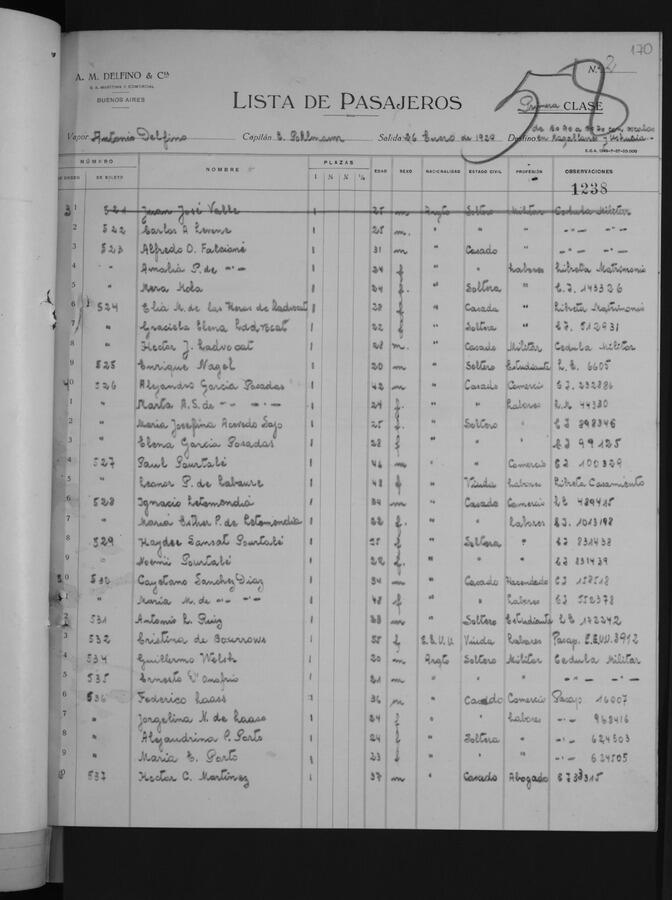 170
A. M. DELFINO & Cía
S. A. MARÍTIMA Y COMERCIAL
BUENOS AIRES
N.º 2
58
LISTA DE PASAJEROS
Primera CLASE
Vapor Antonio Delfino Capitán Salida 26 Enero de 1929 Destino
NÚMERO NOMBRE PLAZAS EDAD SEXO NACIONALIDAD ESTADO CIVIL PROFESIÓN OBSERVACIONES
DE ORDEN DE BOLETO 1 ½ ¼ ⅛
1238
31 521 Juan José Valle 1 25 m Argto Soltero Militar Cedula Militar
2 522 Carlos A. 1 25 m. " " " -"- -"-
3 523 Alfredo O. 1 31 m " Casado " -"- -"-
4 " Amalia P. de -"- 1 24 f " " Labores Libreta Matrimonio
5 " Mera Mola 1 24 f. " Soltera " C.I. 143326
6 524 Elia M. de las Heras de Ladvocat 1 28 f " Casada " Libreta Matrimonio
7 " Graciela Elena Ladvocat 1 22 f " Soltera " C.I. 512931
8 " Hector J. Ladvocat 1 28 m. " Casado Militar Cedula Militar
9 525 Enrique Nagel 1 20 m " Soltero Estudiante L.E. 6605
40 526 Alejandro Garcia Posadas 1 42 m " Casado Comercio C.I. 232886
1 " Marta A. S. de -"- -"- 1 24 f. " " Labores 44380
2 " Maria Josefina Acevedo 1 25 f. " Soltero " C.I. 398346
3 " Elena Garcia Posadas 1 28 f " " " C.I. 99125
4 527 Paul Pourtalé 1 46 m " " Comercio C.I. 100329
5 " Leonor P. de Labaure 1 48 f " Viuda Labores Libreta Casamiento
6 528 Ignacio Letamendia 1 34 m " Casado Comercio L.E. 489485
7 " Maria Esther P. de Letamendia 1 22 f. " " Labores C.I. 1013198
8 529 Haydee Sansat Pourtalé 1 25 f " Soltera " C.I. 831438
9 " Noemi Pourtalé 1 22 f. " " " C.I. 831439
50 530 Cayetano Sanchez Diaz 1 54 m " Casado Hacendado C.I. 158518
1 " Maria M. de -"- -"- 1 48 f " " Labores C.I. 552378
2 531 Antonio L. Ruiz 1 23 m " Soltero Estudiante L.E. 172242
3 532 Cristina de Bourrows 1 55 f E.E.U.U. Viuda Labores Pasap. E.E.UU. 3912
4 534 Guillermo Welsh 1 20 m Argto Soltero Militar Cedula Militar
5 535 Ernesto D'Onofrio 1 21 m " " " -"- -"-
6 536 Federico Laass 1 36 m " Casado Comercio Pasap. 16007
7 " Jorgelina N. de Laass 1 24 f " " Labores -"- 968416
8 " Alejandrina P. Porto 1 24 f " Soltera " -"- 624503
9 " Maria E. Porto 1 23 f " " " -"- 624505
60 537 Hector C. Martinez 1 37 m " Casado Abogado C.I. 733315